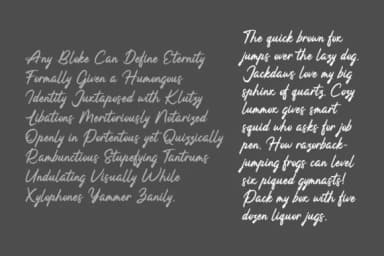 Any Bloke Can Define Eternity
Formally Given a Humongous
Identity Juxtaposed with Klutzy
Libations Meritoriously Notarized
Openly in Portentous yet Quizzically
Rambunctious Stupefying Tantrums
Undulating Visually While
Xylophones Yammer Zanily.
The quick brown fox
jumps over the lazy dog.
Jackdaws love my big
sphinx of quartz. Cozy
lummox gives smart
squid who asks for job
pen. How razorback-
jumping frogs can level
six piqued gymnasts!
Pack my box with five
dozen liquor jugs.